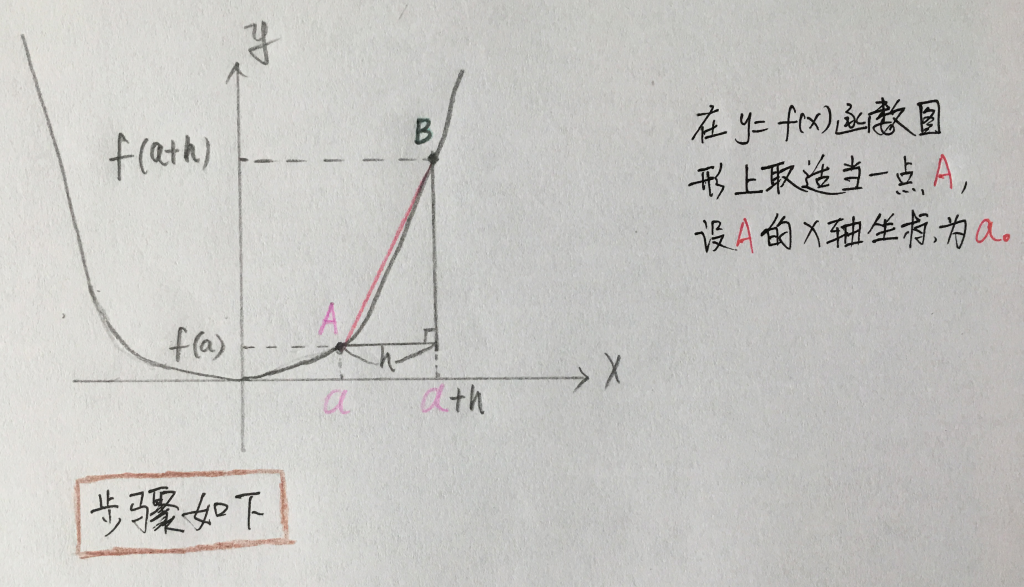 y
f(a+h)
B
A
f(a)
h
x
a
a+h
在y=f(x)函数图
形上取适当一点A，
设A的X轴坐标为a。
步骤如下